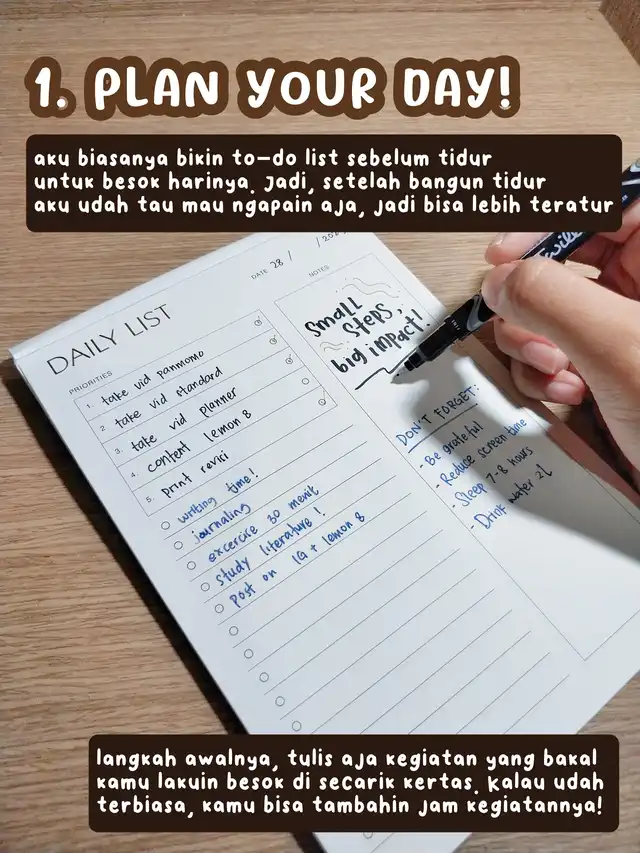 1. PLAN YOUR DAY!
aku biasanya bikin to-do list sebelum tidur
untuk besok harinya. Jadi, setelah bangun tidur
aku udah tau mau ngapain aja, jadi bisa lebih teratur
DATE 28 /
DAILY LIST
PRIORITIES
1. take vid panmomo
2. take vid standard
3. take vid planner
4. content lemon 8
5. print revici
writing time!
journaling
excercise 30 menit
study literature!
post on IG + lemon 8
NOTES
Small
steps,
big impact!
DON'T FORGET:
- Be grateful
- Reduce screen time
- Sleep 7-8 hours
- Drink water 2L
langkah awalnya, tulis aja kegiatan yang bakal
kamu lakuin besok di secarik kertas. Kalau udah
terbiasa, kamu bisa tambahin jam kegiatannya!